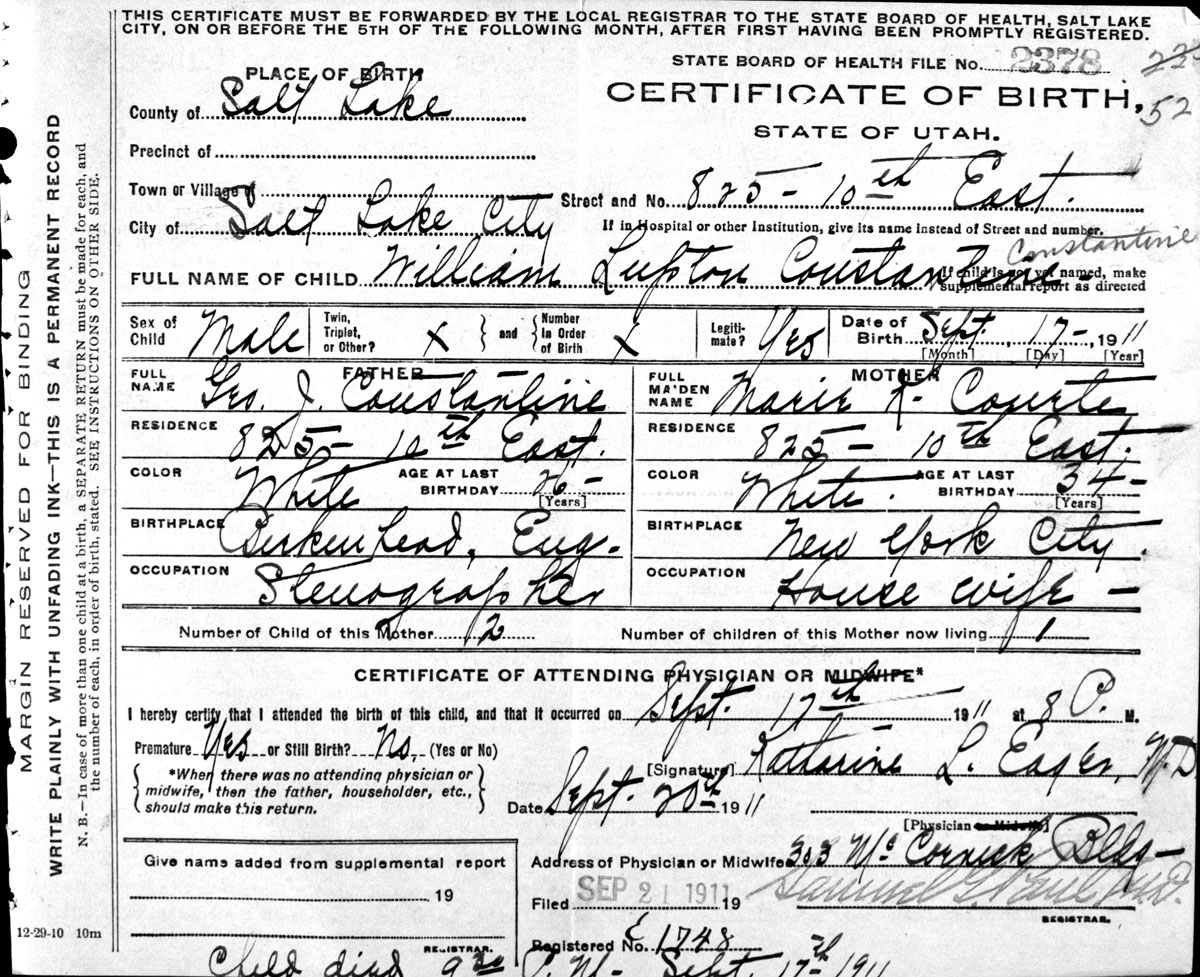 THIS CERTIFICATE MUST BE FORWARDED BY THE LOCAL REGISTRAR TO THE STATE BOARD OF HEALTH, SALT LAKE
CITY, ON OR BEFORE THE 5TH OF THE FOLLOWING MONTH, AFTER FIRST HAVING BEEN PROMPTLY REGISTERED.
STATE BOARD OF HEALTH FILE No. 2378
PLACE OF BIRTH
CERTIFICATE OF BIRTH,
52
County of Salt Lake
STATE OF UTAH.
Precinct of
Town or Village of
Street and No. 825 - 10th East.
City of Salt Lake City
If in Hospital or other Institution, give its name instead of Street and number.
Constantine
FULL NAME OF CHILD William Lupton Constantine
If child is not yet named, make
supplemental report as directed
Sex of Child Male
Twin, Triplet, or Other? X
and
Number in Order of Birth X
Legiti-mate? Yes
Date of Birth Sept. 17 - 1911
[Month] [Day] [Year]
FATHER
FULL NAME Geo. J. Constantine
RESIDENCE 825 - 10th East.
COLOR White
AGE AT LAST BIRTHDAY 26 -
[Years]
BIRTHPLACE Birkenhead, Eng.
OCCUPATION Stenographer
MOTHER
FULL MAIDEN NAME Marie K. Courte
RESIDENCE 825 - 10th East.
COLOR White.
AGE AT LAST BIRTHDAY 34 -
[Years]
BIRTHPLACE New York City.
OCCUPATION House wife -
Number of Child of this Mother 2
Number of children of this Mother now living 1
CERTIFICATE OF ATTENDING PHYSICIAN OR MIDWIFE*
I hereby certify that I attended the birth of this child, and that it occurred on Sept. 17th 1911 at 8 P. M.
Premature Yes or Still Birth? No. (Yes or No)
*When there was no attending physician or
midwife, then the father, householder, etc.,
should make this return.
[Signature] Katharine L. Eager, M.D
Date Sept. 20th 1911
[Physician or Midwife]
Give name added from supplemental report
19
REGISTRAR.
Address of Physician or Midwife 303 Mc Cornick Bldg -
Filed SEP 21 1911 19 Samuel G. Paul M.D.
REGISTRAR.
Registered No. 1748
12-29-10 10m
Child died 9 P.M. Sept. 17th 1911
MARGIN RESERVED FOR BINDING
WRITE PLAINLY WITH UNFADING INK—THIS IS A PERMANENT RECORD
N. B.—In case of more than one child at a birth, a SEPARATE RETURN must be made for each, and
the number of each, in order of birth, stated. SEE INSTRUCTIONS ON OTHER SIDE.